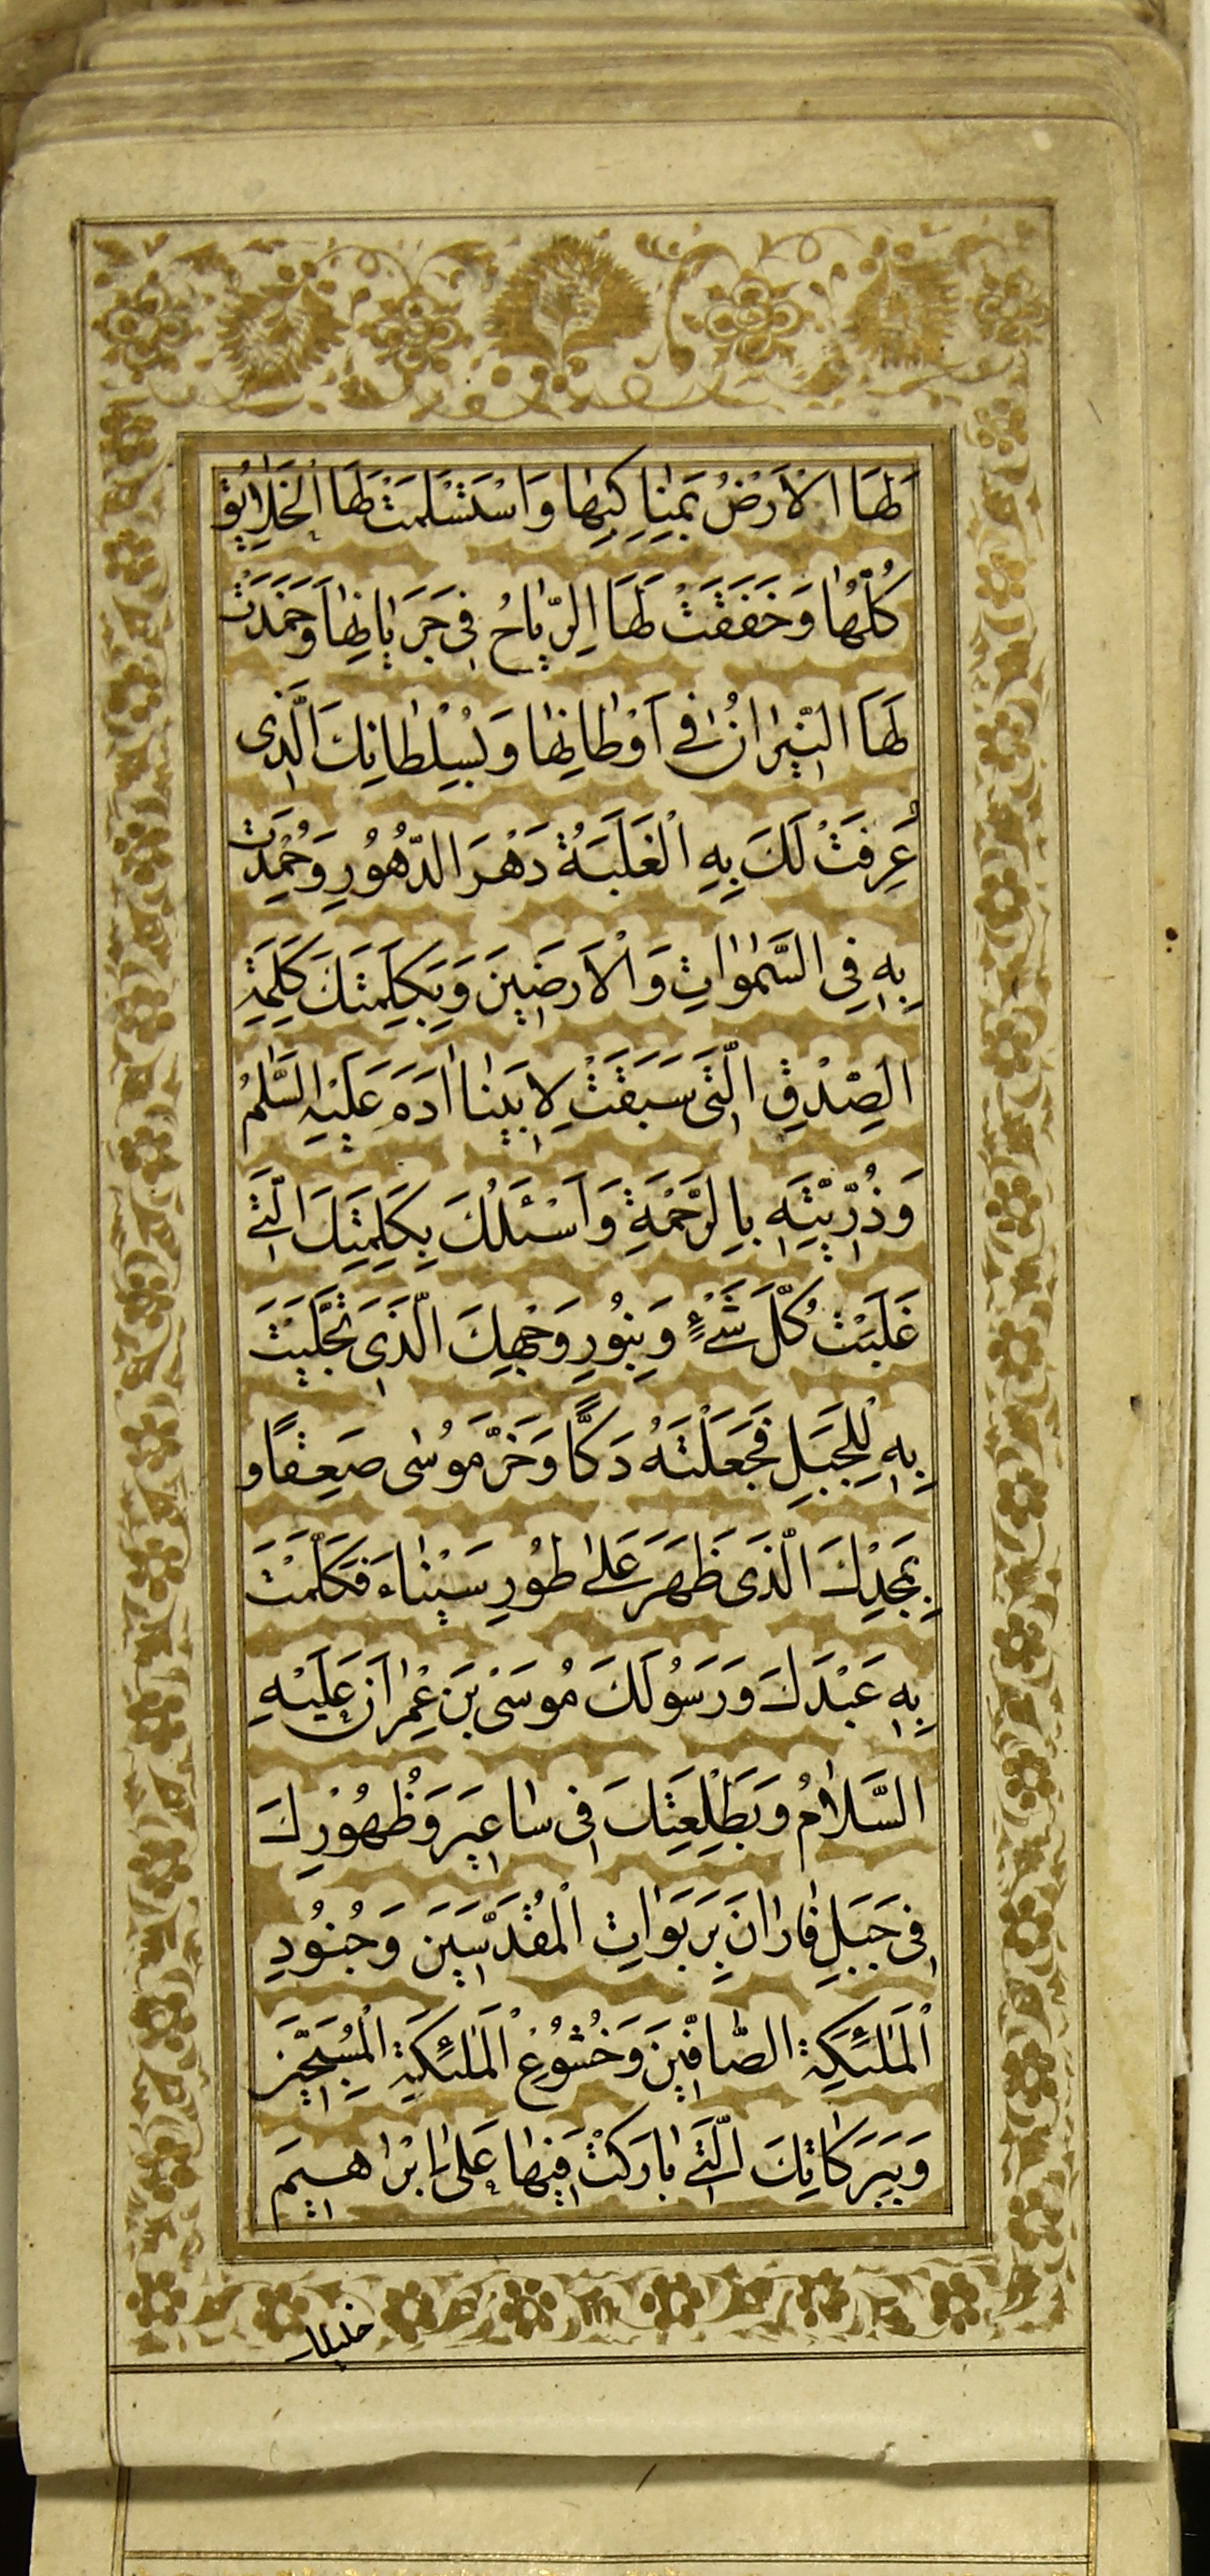 لَهَا الْاَرْضُ بِمَنٰاكِبِهٰا وَاسْتَسْلَمَتْ لَهَا الْخَلٰائِقُ
كُلُّهٰا وَخَفَقَتْ لَهَا الرِّيٰاحُ فِي جَرَيٰانِهٰا وَخَمَدَتْ
لَهَا النّيرٰانُ فِي اَوْطٰانِهٰا وَبِسُلْطٰانِكَ الَّذِى
عُرِفَتْ لَكَ بِهِ الْغَلَبَةُ دَهْرَ الدُّهُورِ وَحُمِدْتَ
بِهِ فِى السَّمٰوٰاتِ وَالْاَرَضِينَ وَبِكَلِمَتِكَ كَلِمَةِ
الصِّدْقِ الَّتِى سَبَقَتْ لِاَبِينٰا اٰدَمَ عَلَيْهِ السَّلٰمُ
وَذُرِّيَّتِهِ بِالرَّحْمَةِ وَاَسْئَلُكَ بِكَلِمَتِكَ الَّتِى
غَلَبَتْ كُلَّ شَىْءٍ وَبِنُورِ وَجْهِكَ الَّذِى تَجَلَّيْتَ
بِهِ لِلْجَبَلِ فَجَعَلْتَهُ دَكًّا وَخَرَّ مُوسٰى صَعِقًا وَ
بِمَجْدِكَ الَّذِى ظَهَرَ عَلٰى طُورِ سَيْنٰاءَ فَكَلَّمْتَ
بِهِ عَبْدَكَ وَرَسُولَكَ مُوسَى بْنَ عِمْرٰانَ عَلَيْهِ
السَّلٰامُ وَبِطَلْعَتِكَ فِى سٰاعِيرَ وَظُهُورِكَ
فِى جَبَلِ فٰارٰانَ بِرَبَوٰاتِ الْمُقَدَّسِينَ وَجُنُودِ
الْمَلٰئِكَةِ الصّٰافِّينَ وَخُشُوعِ الْمَلٰئِكَةِ الْمُسَبِّحِينَ
وَبِبَرَكٰاتِكَ الَّتِى بٰارَكْتَ فِيهٰا عَلٰى اِبْرٰاهِيمَ
خليلك